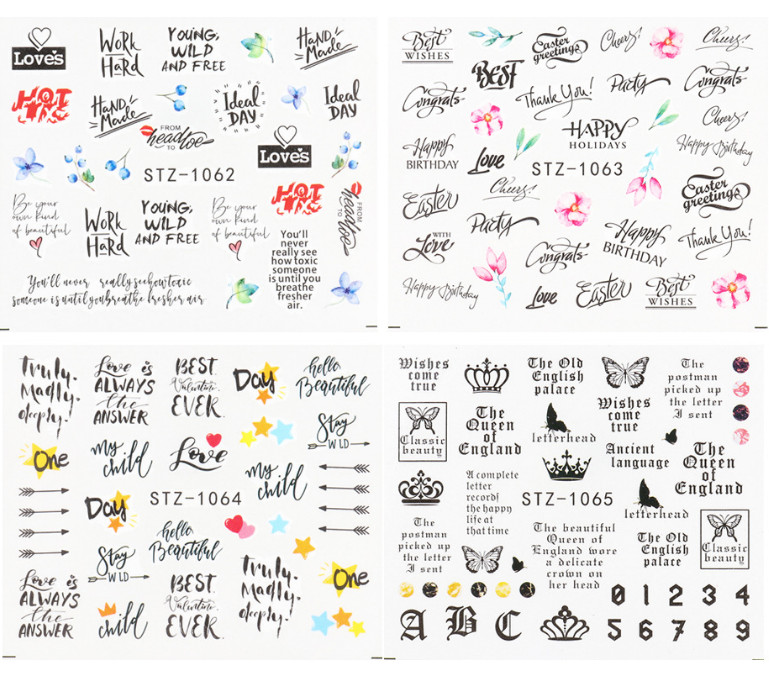 Love's
Work
Hard
YOUNG,
WILD
AND FREE
HAND
Made
HOT
HAND
Made
Ideal
DAY
Ideal
DAY
FROM
head
TO
toe
Love's
STZ-1062
Be your
own kind
of beautiful
Work
Hard
YOUNG,
WILD
AND FREE
Be your
own kind
of beautiful
HOT
FROM
head
TO
toe
You'll
never
really see
how toxic
someone
is until you
breathe
fresher
air.
You'll never really see how toxic
someone is until you breathe fresher air
Best
WISHES
Easter
greetings
Cheers!
Cheers!
BEST
Congrats
Congrats
Thank You!
Party
Cheers!
HAPPY
HOLIDAYS
Happy
BIRTHDAY
Love
Happy Birthday
STZ-1063
Cheers!
Easter
Easter
greetings
Party
WITH
Love
Congrats
Happy
BIRTHDAY
Thank You!
Happy Birthday
Love
Easter
Best
WISHES
Truly.
Madly.
deeply.
Love is
ALWAYS
the
ANSWER
BEST
Valentine
EVER.
Day
hello
Beautiful
Stay
WILD
One
my
child
Love
my
child
STZ-1064
Day
hello
Beautiful
Stay
WILD
Truly.
Madly.
deeply.
One
Love is
ALWAYS
the
ANSWER
child
BEST
Valentine
EVER.
Wishes
come
true
The Old
English
palace
The
postman
picked up
the letter
I sent
Classic
beauty
The
Queen
of
England
letterhead
Wishes
come
true
Ancient
language
The
Queen
of
England
A complete
letter
records
the happy
life at
that time
STZ-1065
letterhead
The
postman
picked up
the letter
I sent
The beautiful
Queen of
England wore
a delicate
crown on
her head
The Old
English
palace
Classic
beauty
0 1 2 3 4
A B C
5 6 7 8 9